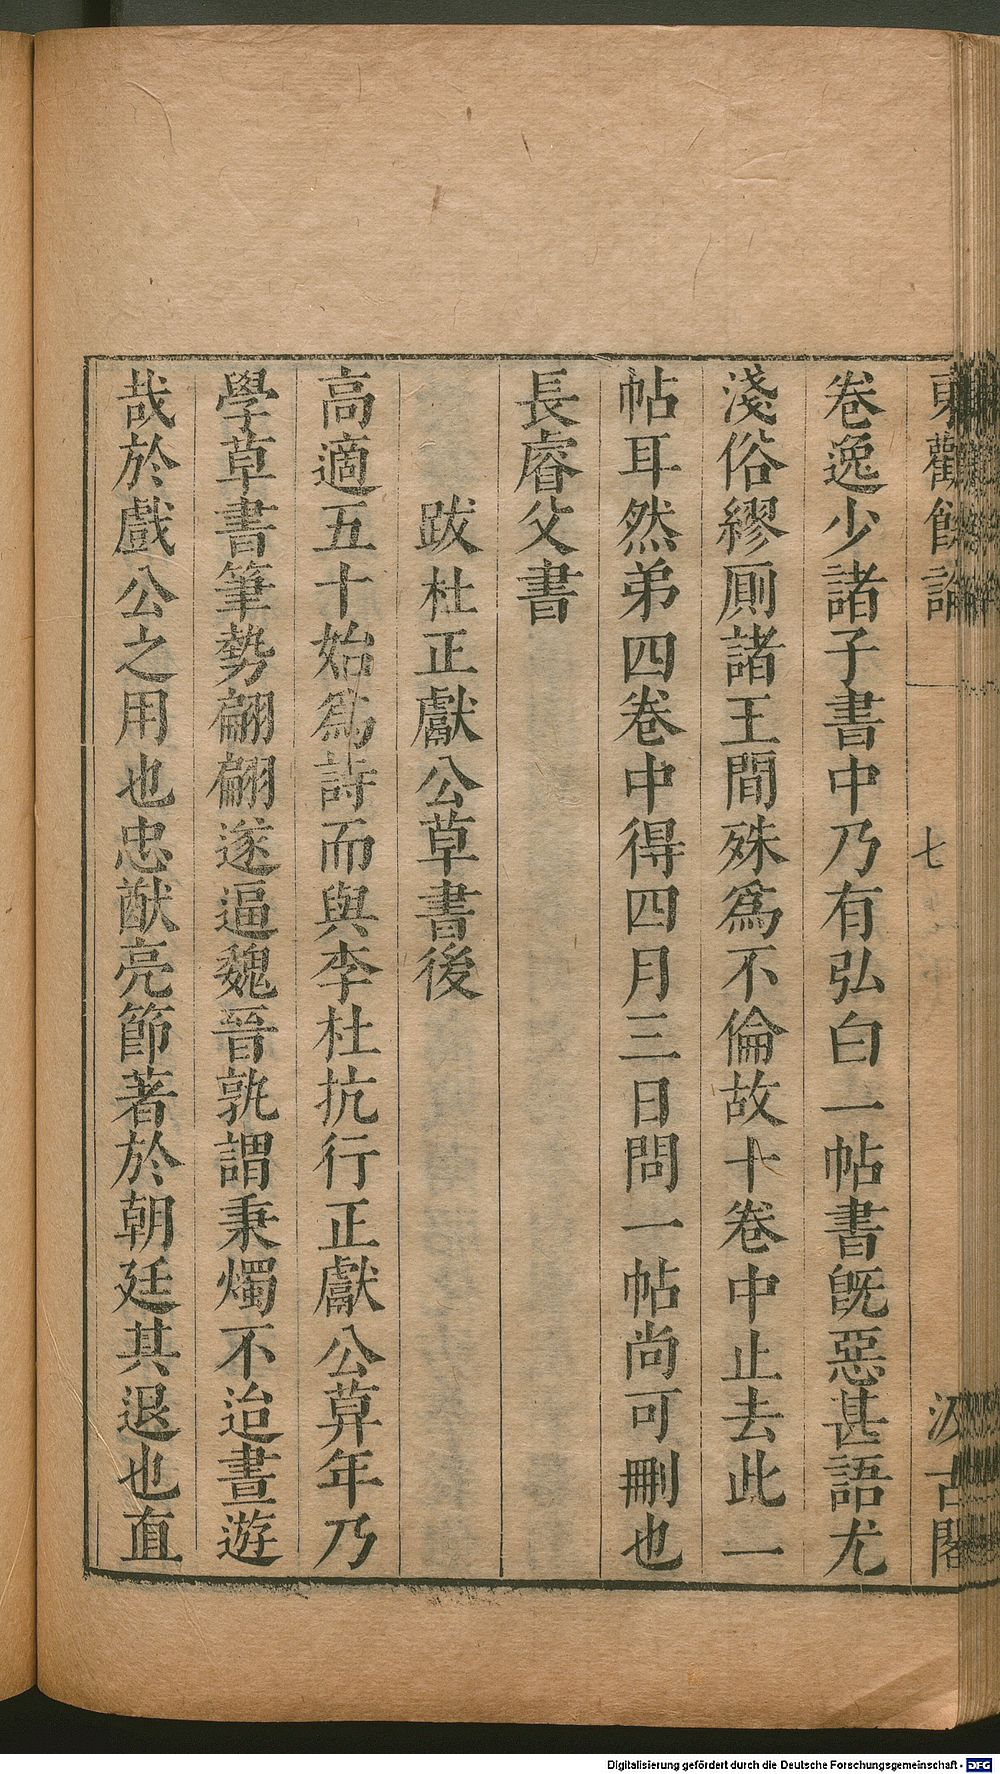 東觀餘論 七 汲古閣
卷逸少諸子書中乃有弘白一帖書旣惡甚語尤
淺俗繆厠諸王間殊爲不倫故十卷中止去此一
帖耳然弟四卷中得四月三日問一帖尚可刪也
長睿父書
跋杜正獻公草書後
高適五十始爲詩而與李杜抗行正獻公萛年乃
學草書筆勢翩翩遂逼魏晉孰謂秉燭不迨晝遊
哉於戲公之用也忠猷亮節著於朝廷其退也直
Digitalisierung gefördert durch die Deutsche Forschungsgemeinschaft - DFG